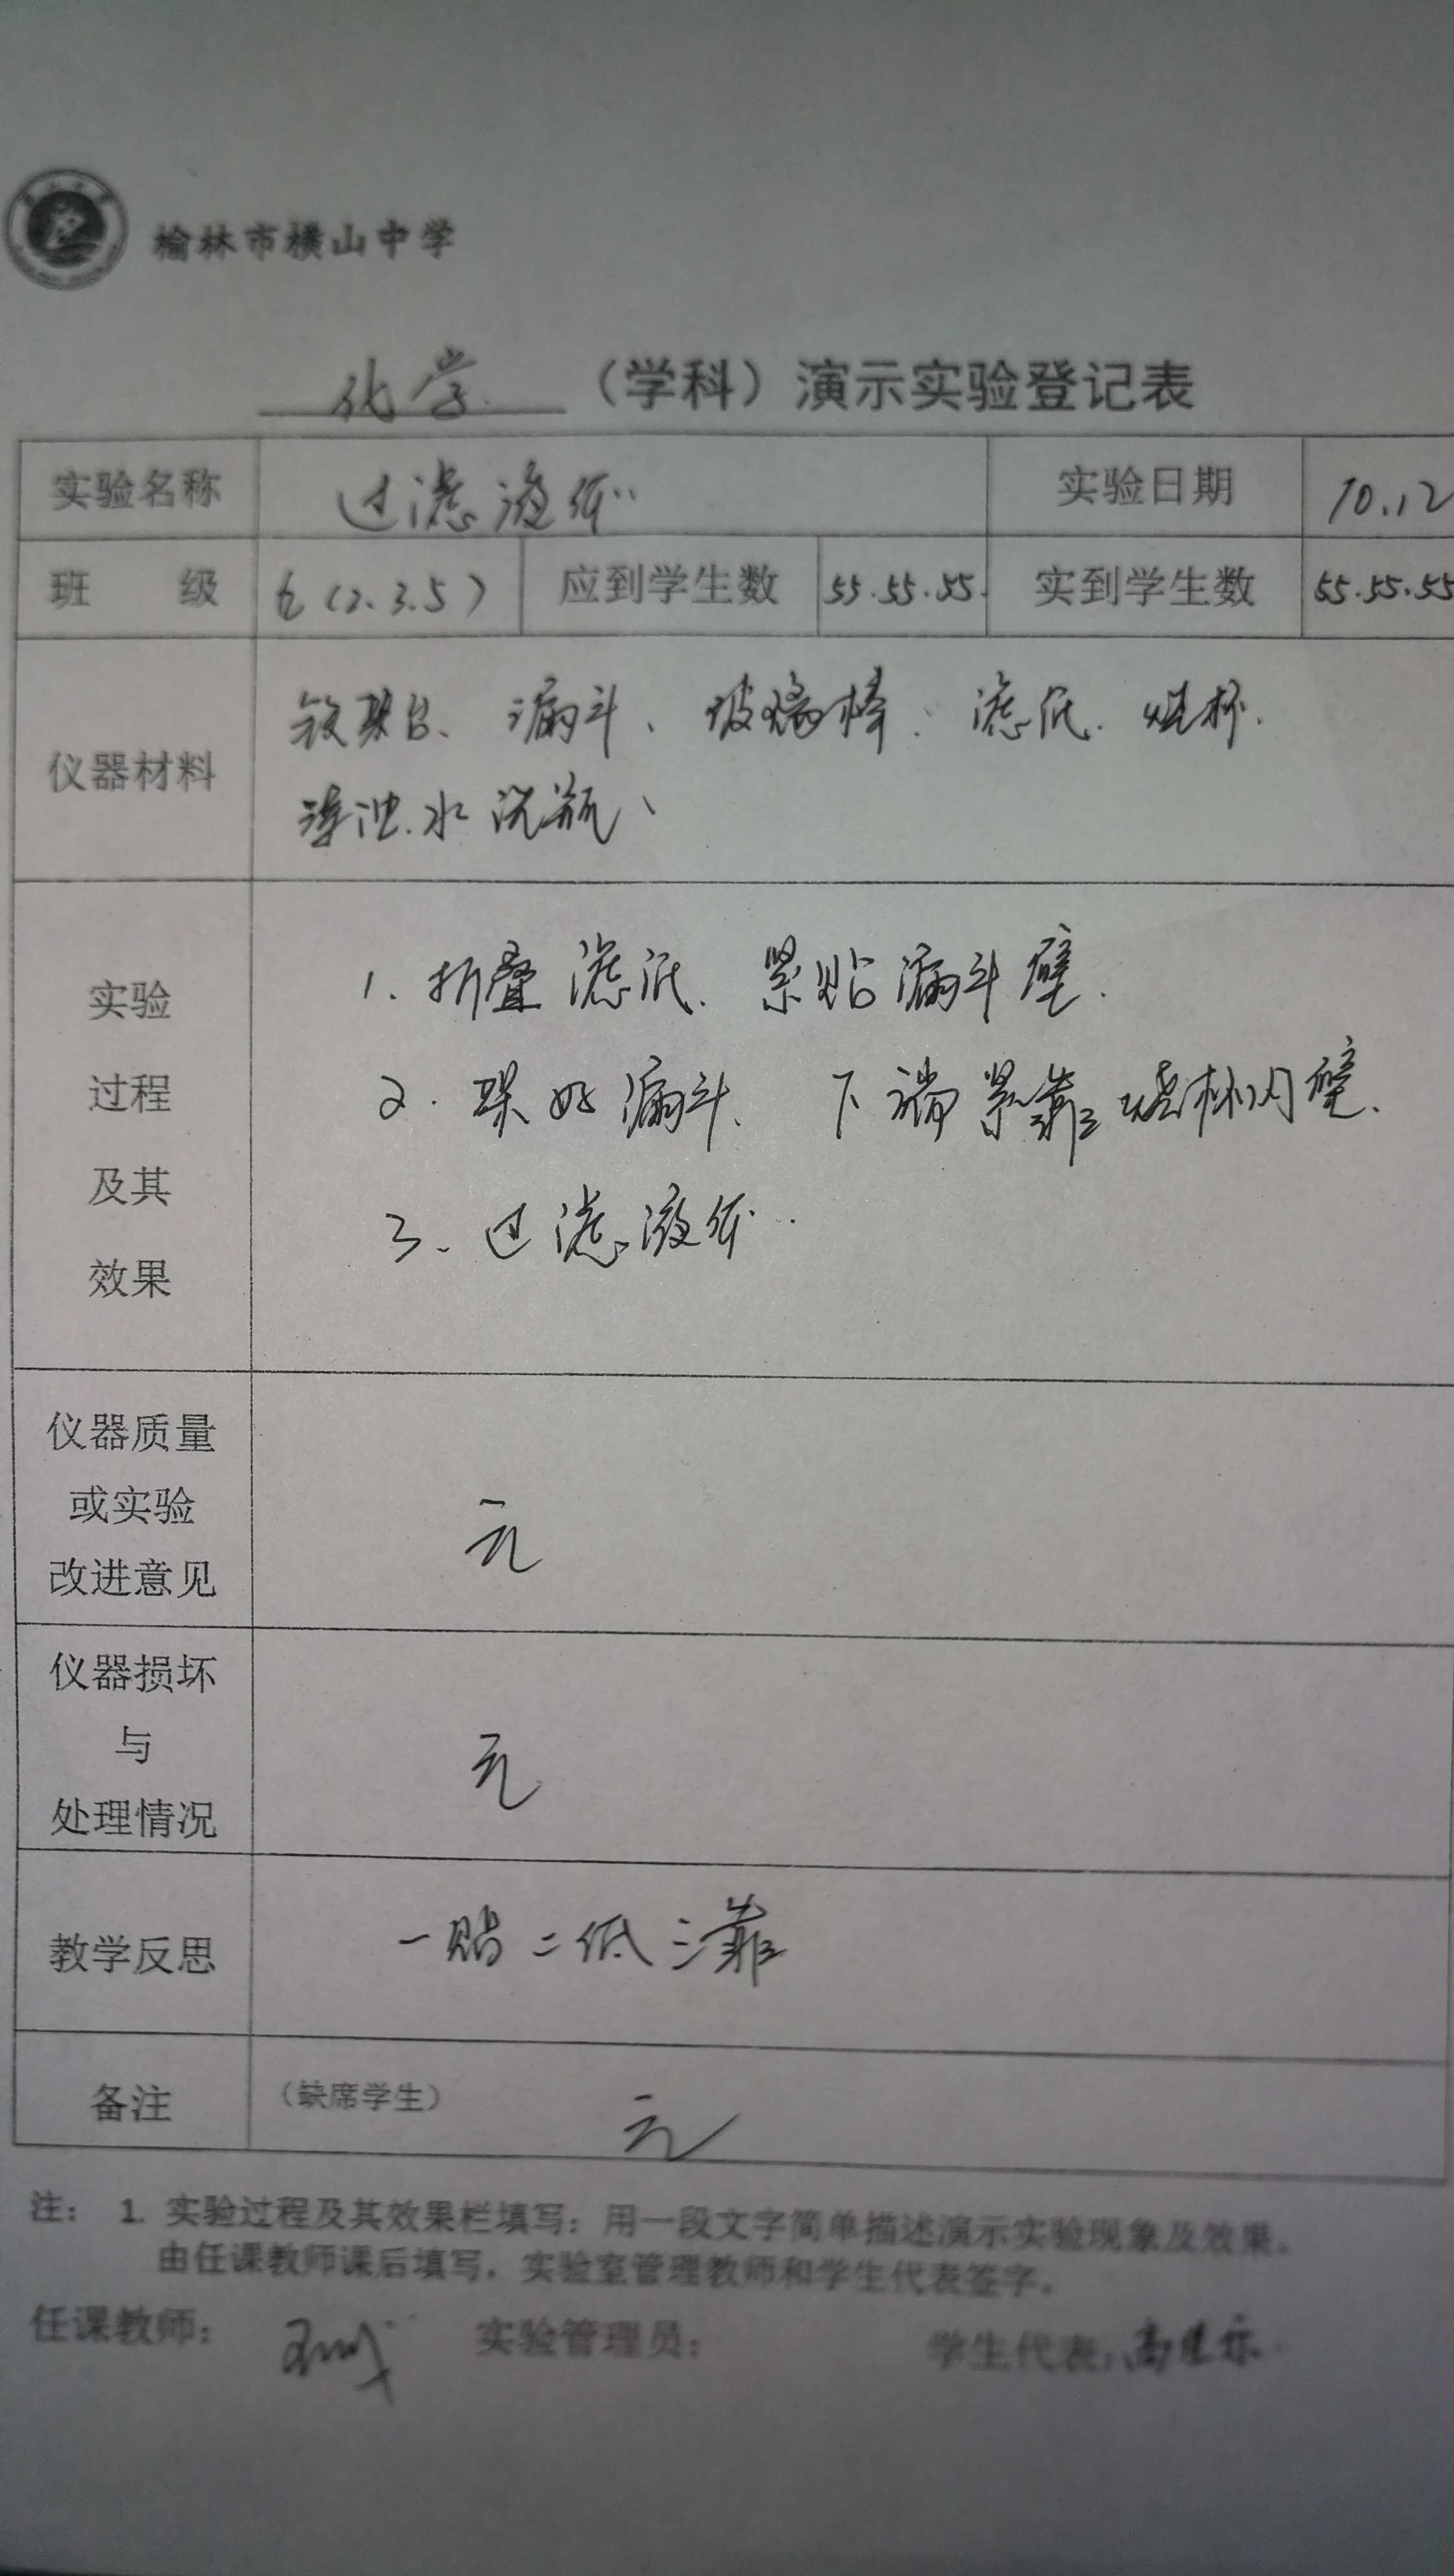 榆林市横山中学
化学（学科）演示实验登记表
实验名称 过滤液体 实验日期 10.12
班 级 (2.3.5) 应到学生数 55.55.55. 实到学生数 55.55.55
仪器材料
铁架台、漏斗、玻璃棒、滤纸、烧杯.
浑浊水 洗瓶、
实验
过程
及其
效果
1.折叠滤纸、紧贴漏斗壁.
2.架好漏斗、下端紧靠烧杯内壁.
3、过滤液体.
仪器质量
或实验
改进意见
无
仪器损坏
与
处理情况
无
教学反思 一贴二低三靠
备注 （缺席学生） 无
注： 1. 实验过程及其效果栏填写：用一段文字简单描述演示实验现象及效果。
由任课教师课后填写，实验室管理教师和学生代表签字。
任课教师： 实验管理员： 学生代表：